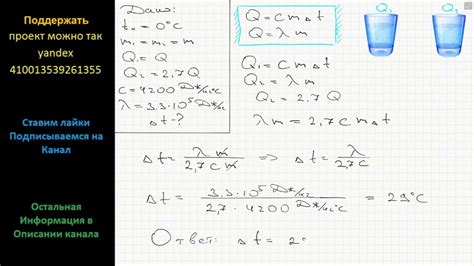 Поддержать
проект можно так
yandex
410013539261355
Ставим лайки
Подписываемся на
Канал
Остальная
Информация в
Описании канала
Дано:
t₀ = 0°C
m₁ = m₂ = m
Q₁ = Q
Q₂ = 2,7 Q
c = 4200 Дж/кг°C
λ = 3.3·10⁵ Дж/кг
Δt - ?
Q = c m Δt
Q = λ m
Q₁ = c m Δt
Q₂ = λ m
Q₂ = 2,7 Q
λ m = 2,7 c m Δt
Δt = λ m / 2,7 c m => Δt = λ / 2,7 c
Δt = 3.3·10⁵ Дж/кг / 2,7 · 4200 Дж/кг°C = 29°C
Ответ: Δt = 2
Q₁
Q₂